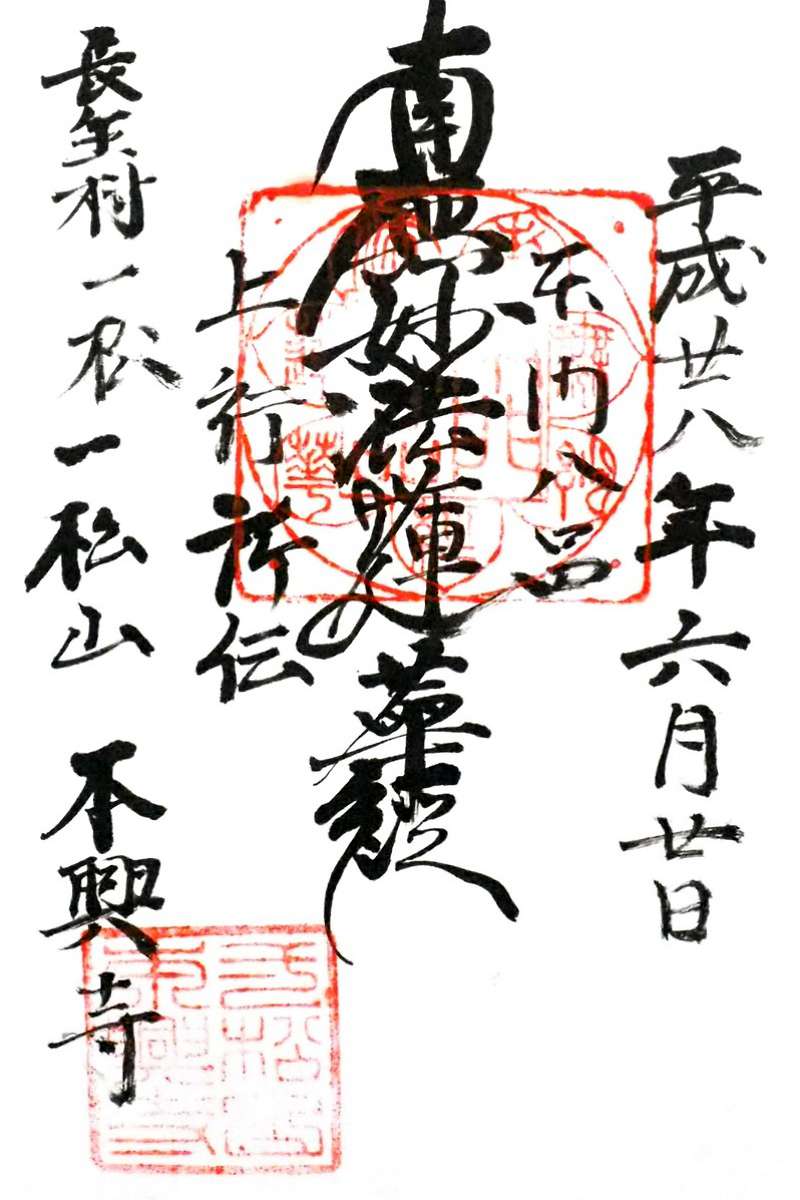 平成廿八年六月廿日
本門八品
南無妙法蓮華経
上行所伝
長生村一松一松山 本興寺